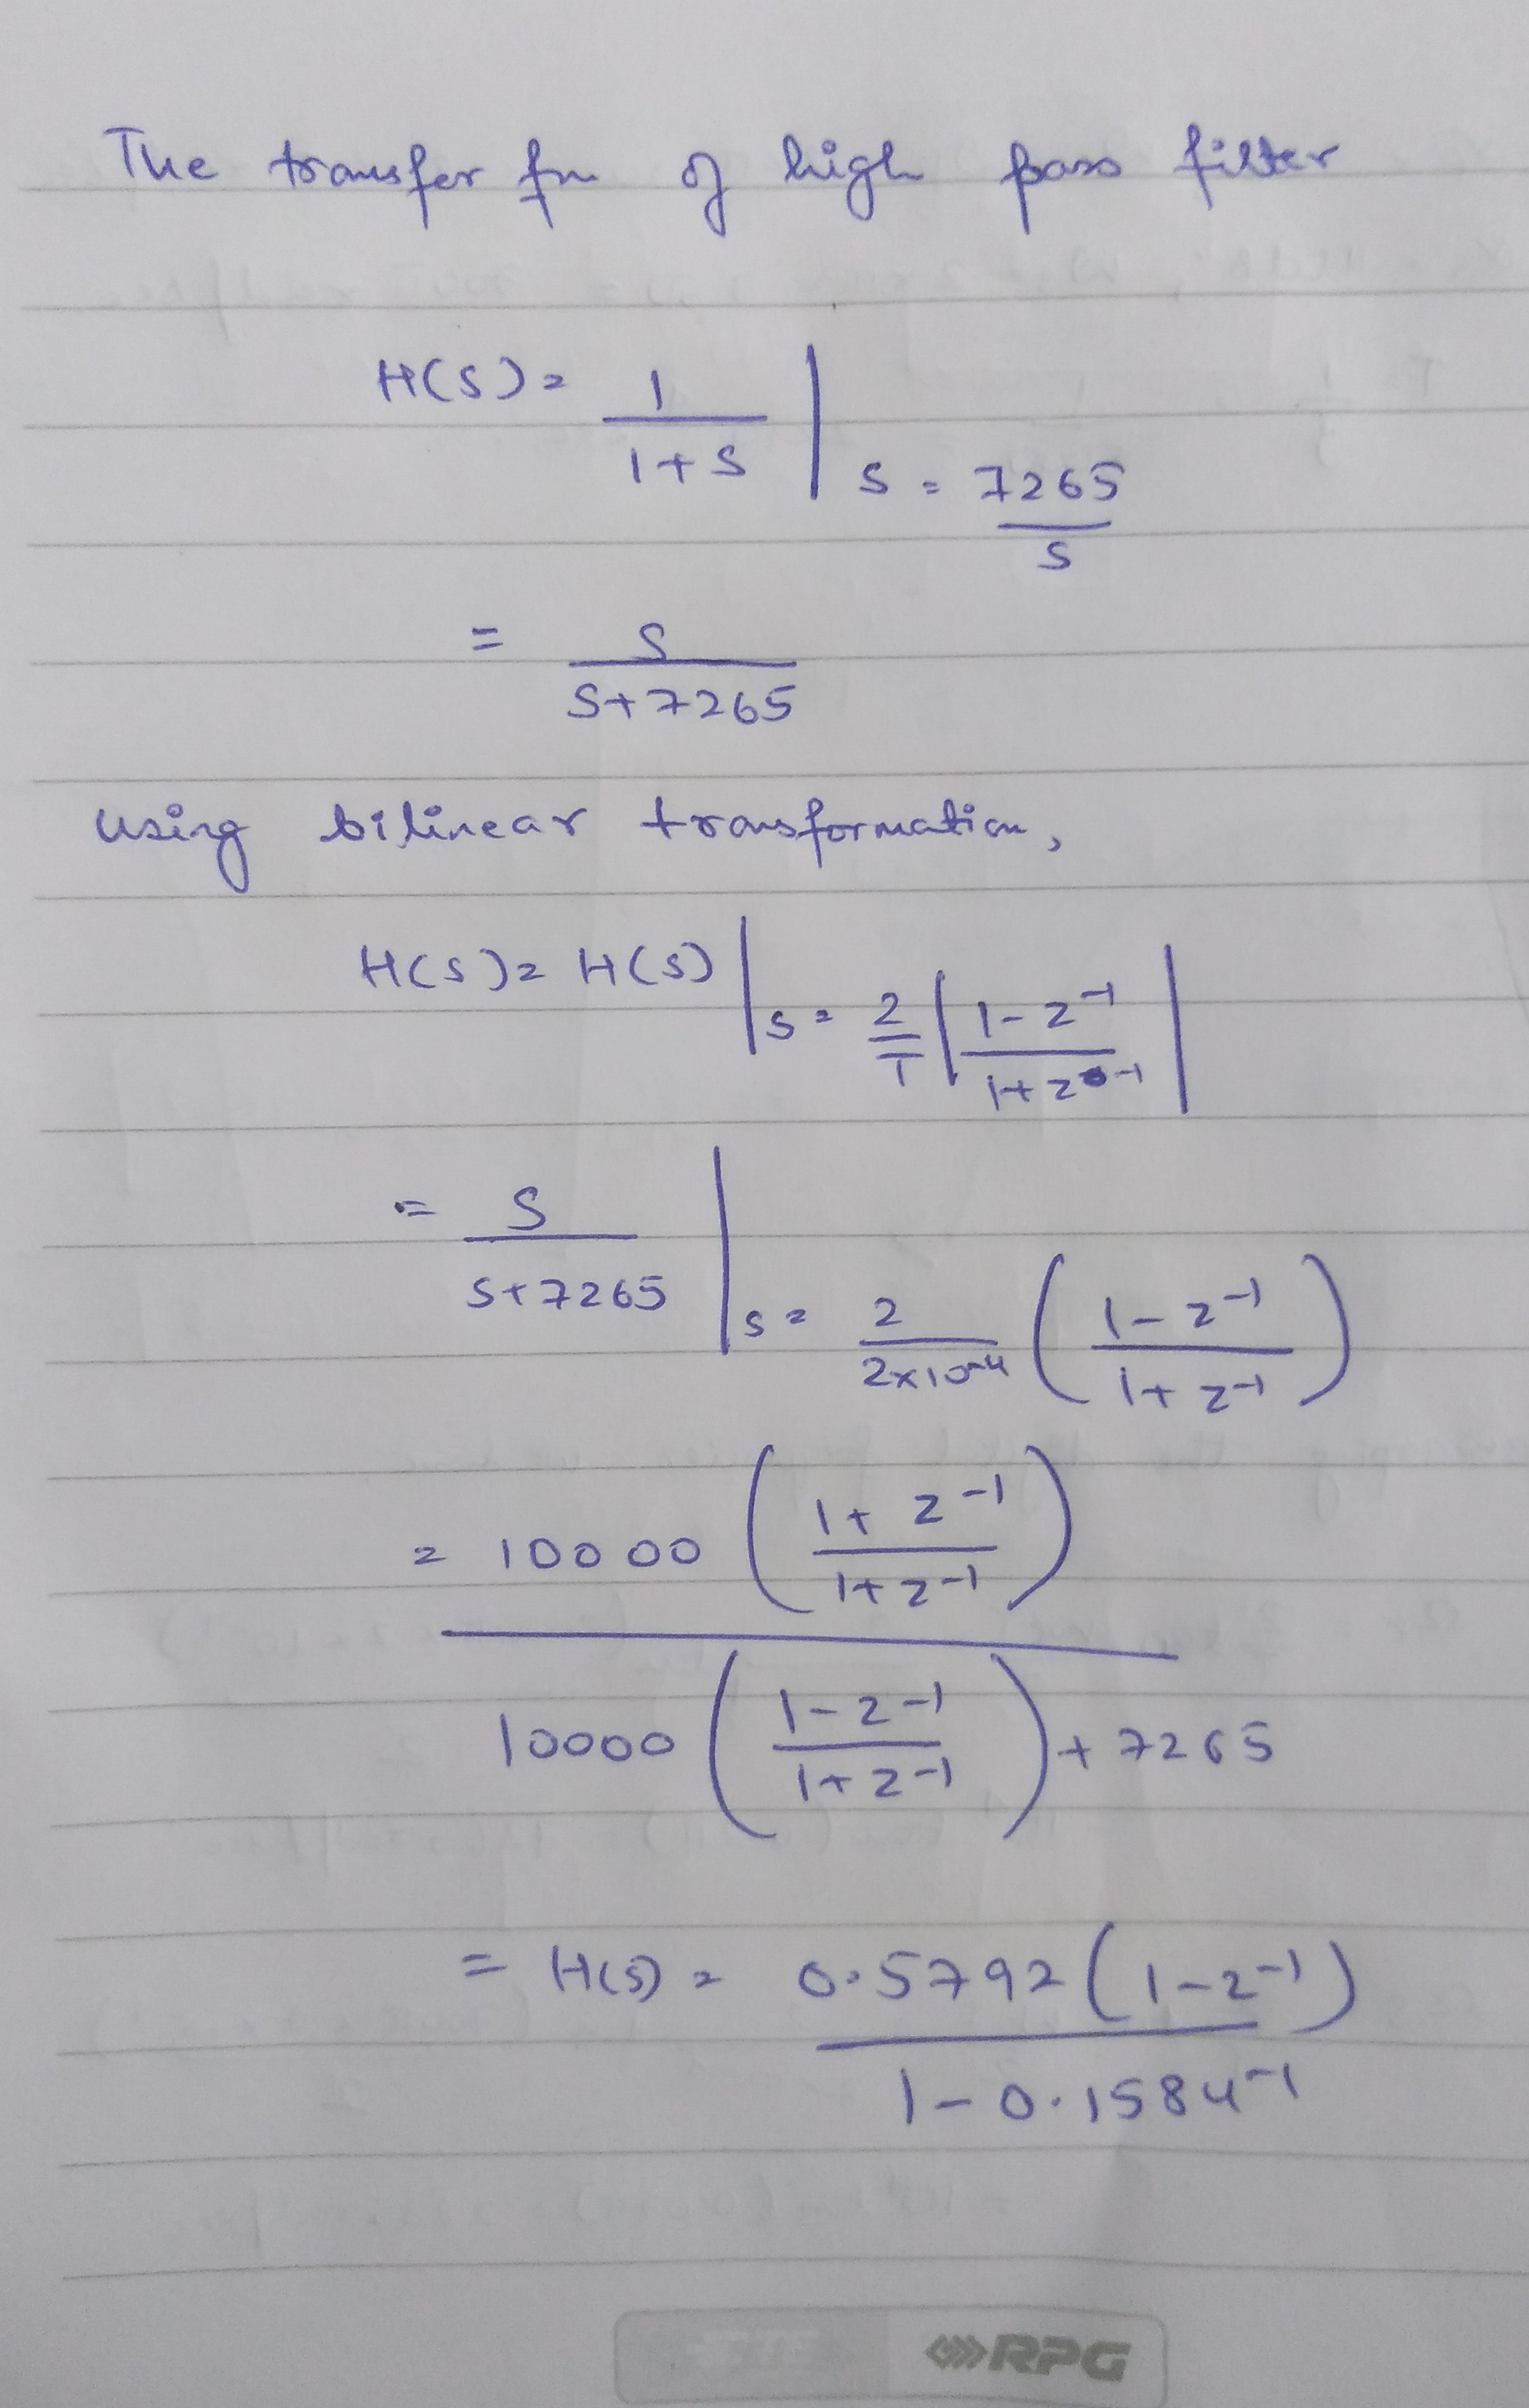 The transfer fn of high pass filter
H(S) = 1 / 1+S | S = 7265 / S
= S / S+7265
using bilinear transformation,
H(S) = H(S) | S = 2/T | 1-z⁻¹ / 1+z⁻¹ |
= S / S+7265 | S = 2 / 2×10⁻⁴ ( 1-z⁻¹ / 1+z⁻¹ )
= 10000 ( 1+z⁻¹ / 1+z⁻¹ )
10000 ( 1-z⁻¹ / 1+z⁻¹ ) + 7265
= H(S) = 0.5792 ( 1-z⁻¹ )
1-0.1584⁻¹
RPG